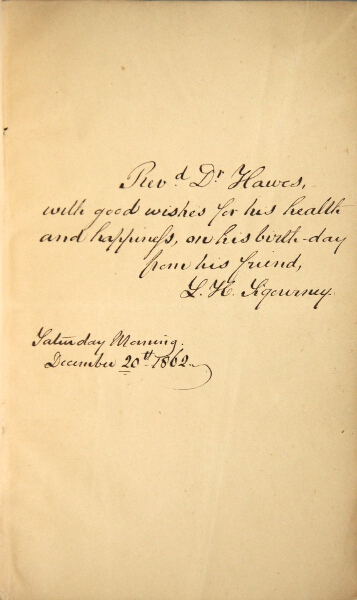 Rev.d Dr Hawes,
with good wishes for his health
and happineſs, on his birth-day
from his friend,
L. H. Sigourney.
Saturday Morning.
December 20th 1862.